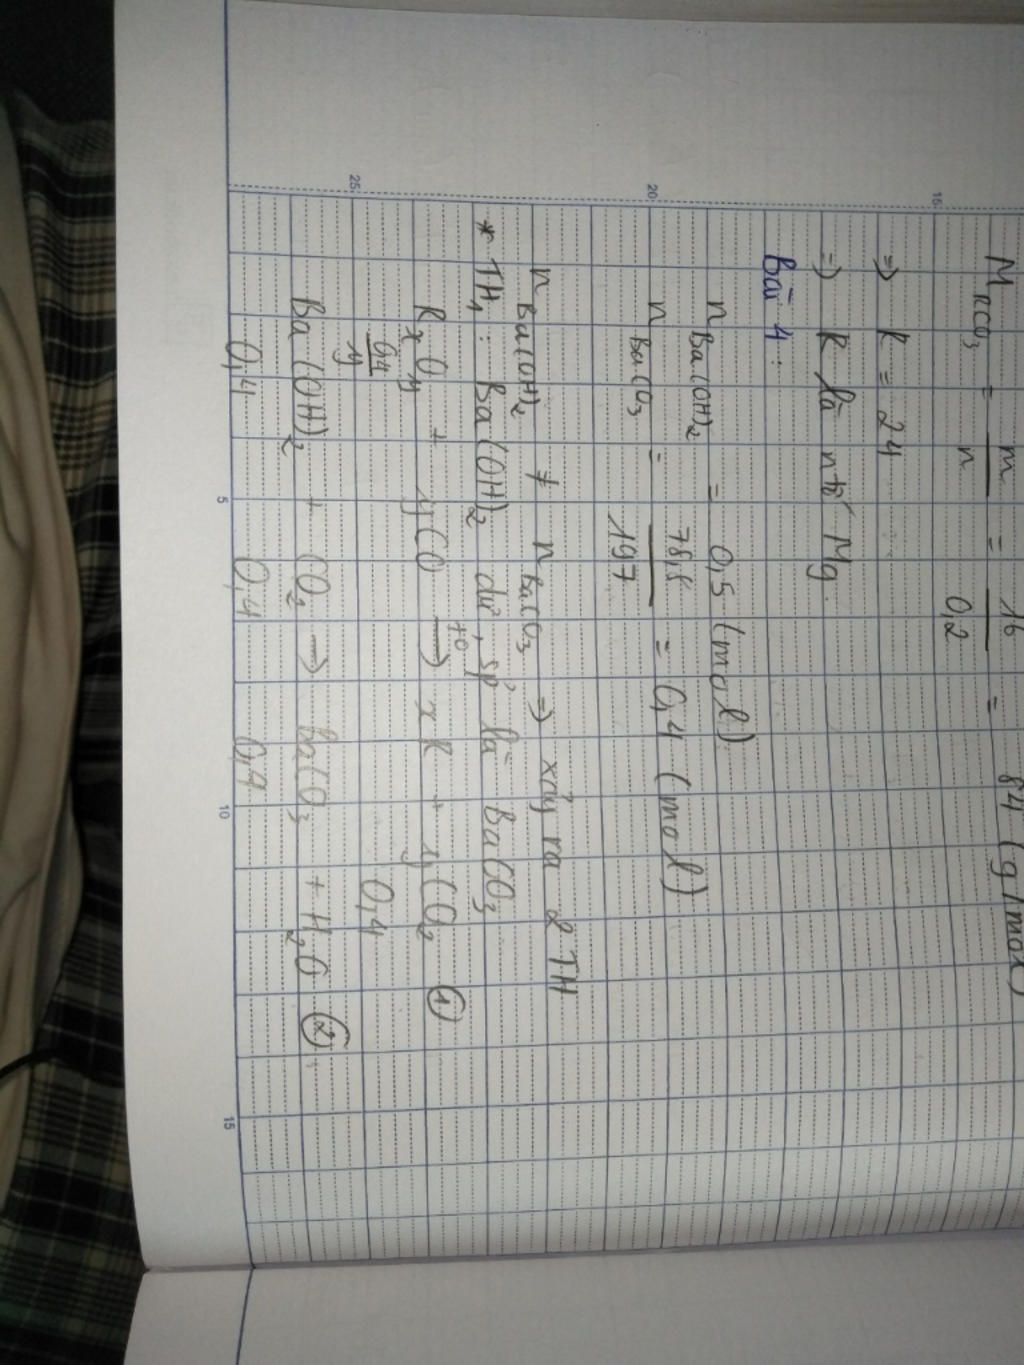 M RCO₃ = m/n = 16/0,2 = 84 (g/mol)
=> R = 24
=> R là ntố Mg
Bài 4 :
n Ba(OH)₂ = 0,5 (mol)
n BaCO₃ = 78,8/197 = 0,4 (mol)
n Ba(OH)₂ ≠ n BaCO₃ => xảy ra 2 TH
* TH₁ : Ba(OH)₂ dư, sp là BaCO₃
RₓOᵧ + yCO —t°→ xR + yCO₂ ①
0,4/y 0,4
Ba(OH)₂ + CO₂ → BaCO₃ + H₂O ②
0,4 0,4 0,4
15
20
25
5
10
15